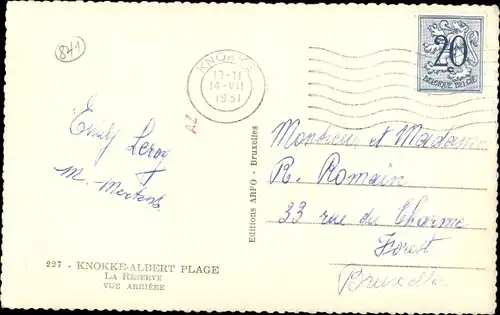 841
KNOKKE
14-VII
1951
20
C
BELGIQUE-BELGIË
AZ
Emily Leroy
M. Mertens
Editions ARFO - Bruxelles
Monsieur et Madame
R. Romain
33 rue du Charme
Forest
Bruxelles
227 - KNOKKE-ALBERT PLAGE
LA RÉSERVE
VUE ARRIÈRE